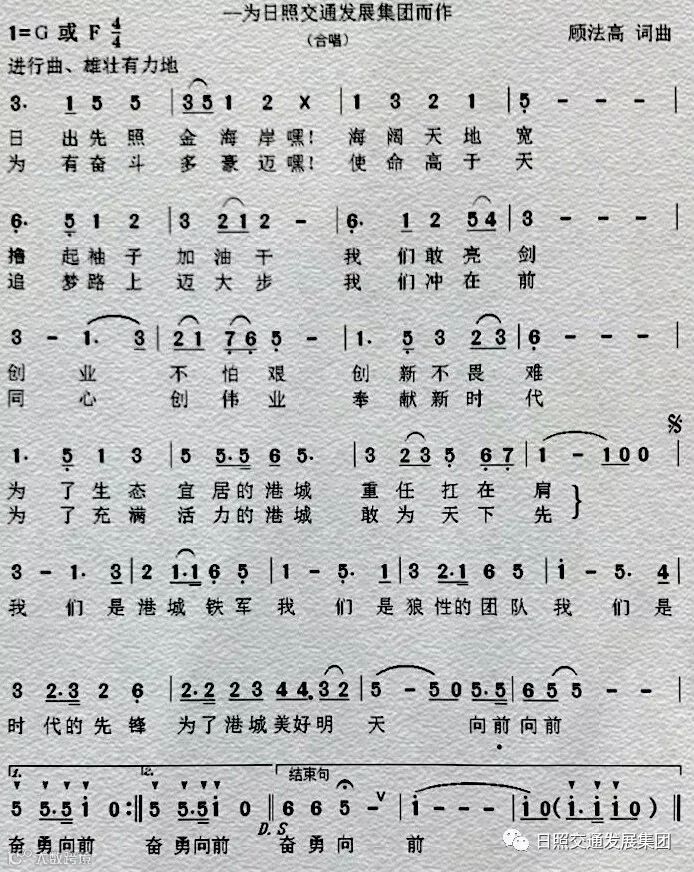 —为日照交通发展集团而作
1=G 或 F 4/4
(合唱)
顾法高 词曲
进行曲、雄壮有力地
3· 1 5 5 | 3 5 1 2 X | 1 3 2 1 | 5 - - - |
日 出先照 金海岸嘿! 海阔天地宽
为 有奋斗 多豪迈嘿! 使命高于天
6· 5 1 2 | 3 2 1 2 - | 6· 1 2 5 4 | 3 - - - |
撸 起袖子 加油干 我们敢亮剑
追 梦路上 迈大步 我们冲在前
3 - 1· 3 | 2 1 7 6 5 - | 1· 5 3 2 3 | 6 - - - |
创业 不怕艰 创新不畏难
同心 创伟业 奉献新时代
1· 5 1 3 | 5 5·5 6 5· | 3 2 3 5 6 7 | 1 - 1 0 0 |
为了生态 宜居的港城 重任扛在肩
为了充满 活力的港城 敢为天下先
3 - 1· 3 | 2 1·1 6 5 | 1 - 5· 1 | 3 2·1 6 5 | i - 5· 4 |
我们是港城铁军我们是狼性的团队我们是
3 2·3 2 6 | 2·2 2 3 4 4· 3 2 | 5 - 5 0 5·5 | 6 5 5 - - |
时代的先锋 为了港城美好明天 向前向前
1. 2. 结束句
5 5·5 i 0 :‖ 5 5·5 i 0 ‖ 6 6 5 - ∨ | i - - - | i 0 ( i· i i i 0 ) ‖
D.S
奋勇向前 奋勇向前 奋勇向 前
日照交通发展集团
大数跨境